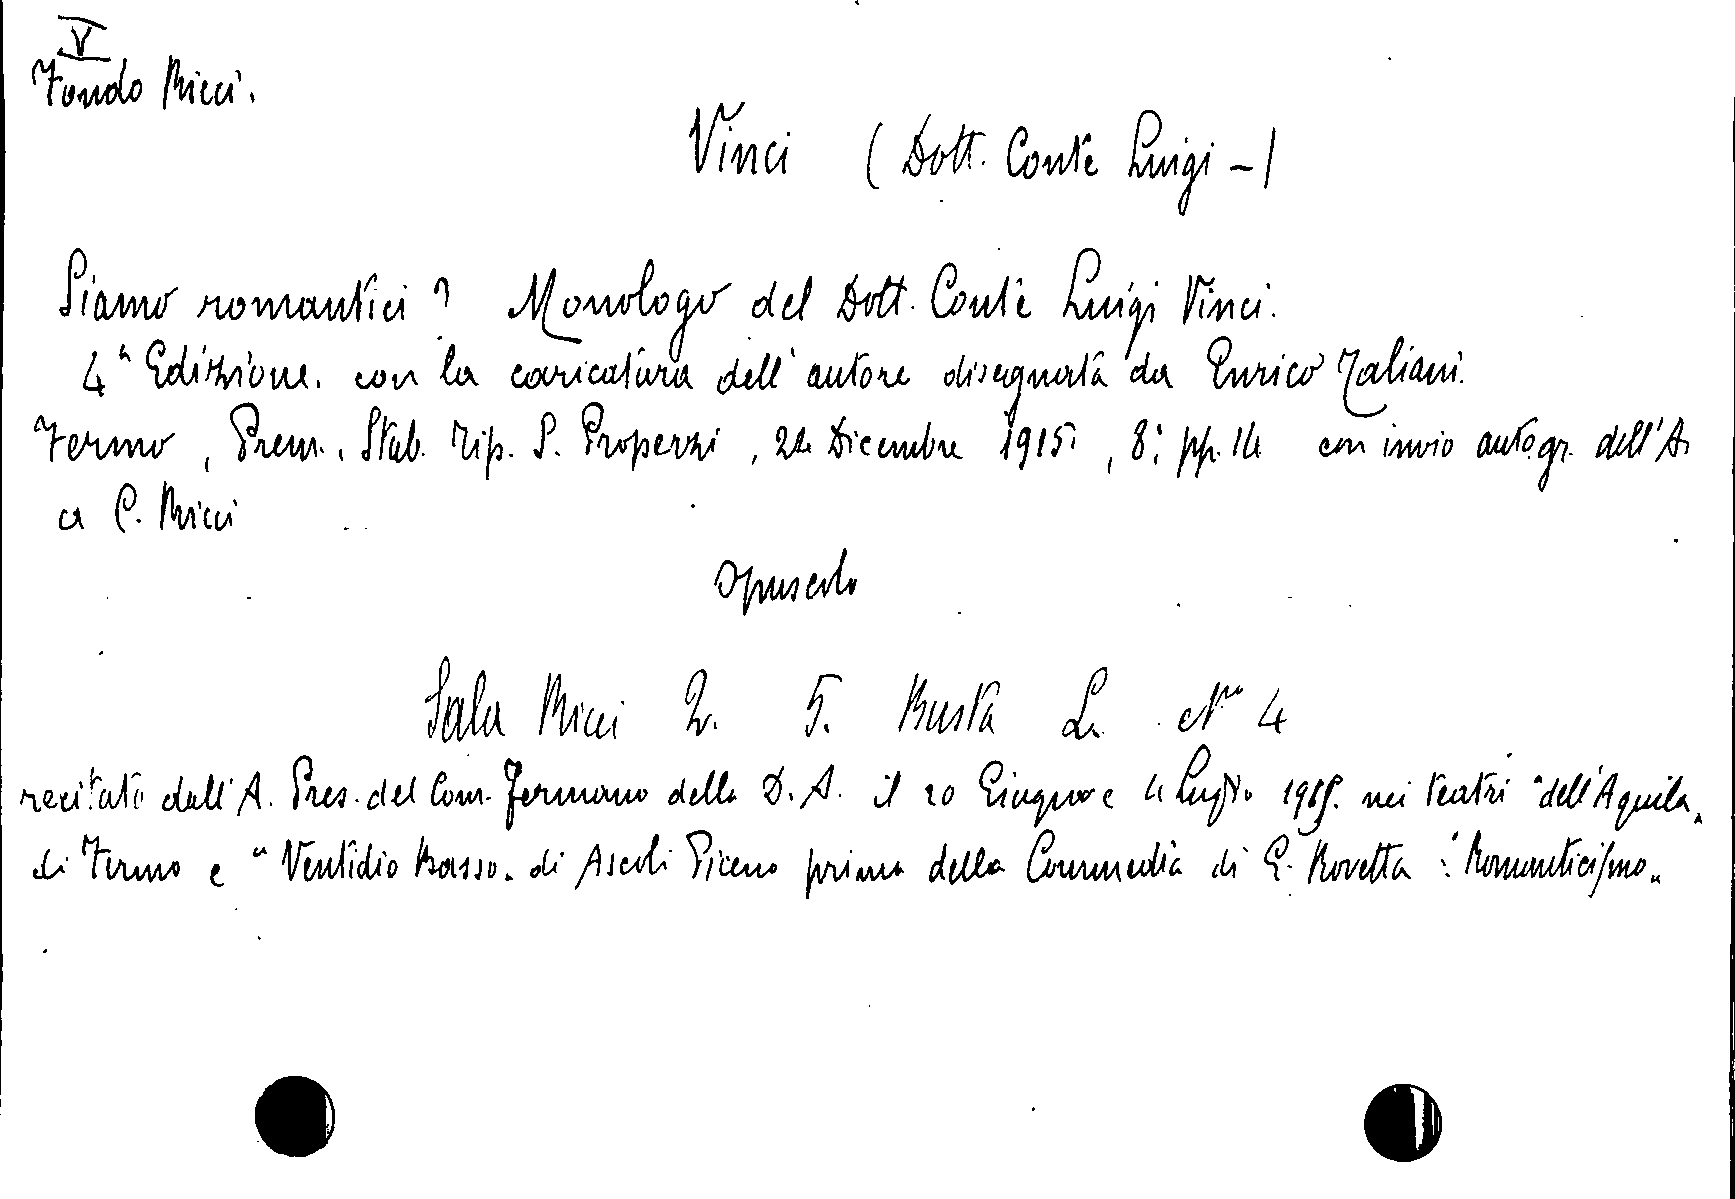 V
Fondo Ricci.
Vinci (Dott. Conte Luigi -)
Siamo romantici? Monologo del Dott. Conte Luigi Vinci.
4ª Edizione. con la caricatura dell'autore disegnata da Enrico Taliani.
Fermo, Prem. Stab. Tip. S. Properzi, 24 Dicembre 1915, 8: pp. 14 con invio autogr. dell'A.
a C. Ricci
Opuscolo
Sala Ricci 2. 5. Busta L. Nº 4
recitato dall'A. Pres. del Com. Fermano della D. A. il 20 Giugno e 4 Luglio 1915. nei teatri "dell'Aquila„
di Fermo e "Ventidio Basso„ di Ascoli Piceno prima della Commedia di G. Rovetta: "Romanticismo„